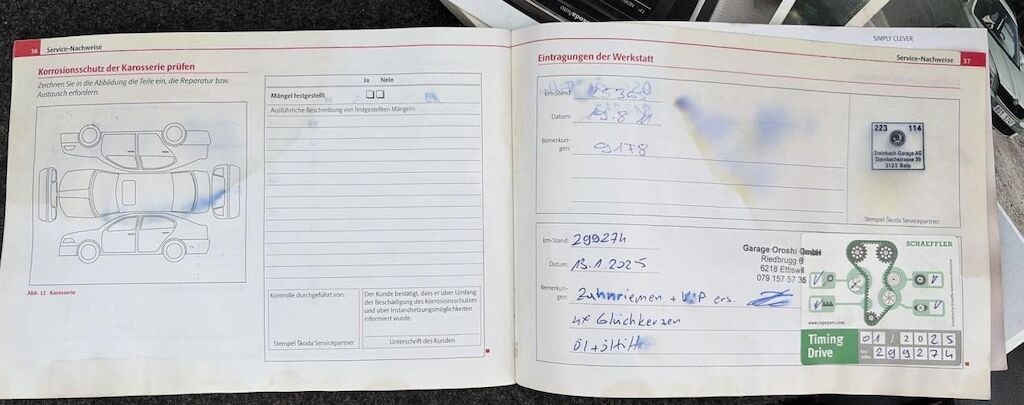 SIMPLY CLEVER
36 Service-Nachweise
Korrosionsschutz der Karosserie prüfen
Zeichnen Sie in die Abbildung die Teile ein, die Reparatur bzw.
Austausch erfordern.
Abb. 12 Karosserie
Ja Nein
Mängel festgestellt
Ausführliche Beschreibung von festgestellten Mängeln:
Kontrolle durchgeführt von:
Stempel Škoda Servicepartner
Der Kunde bestätigt, dass er über Umfang
der Beschädigung des Korrosionsschutzes
und über Instandsetzungsmöglichkeiten
informiert wurde.
Unterschrift des Kunden
Service-Nachweise 37
Eintragungen der Werkstatt
km-Stand:
Datum: 19.8
Bemerkun-
gen: 9178
223 114
Steinbach-Garage AG
Steinbachstrasse 39
3123 Belp
Stempel Škoda Servicepartner
km-Stand: 299274
Datum: 13.1.2025
Bemerkun-
gen: Zahnriemen + WP ers.
4x Glühkerzen
Öl +
Garage Oroshi GmbH
Riedbrugg 6
6218 Ettiswil
079 157 57 35
SCHAEFFLER
www.repxpert.com
Timing
Drive
01 / 2025
299274